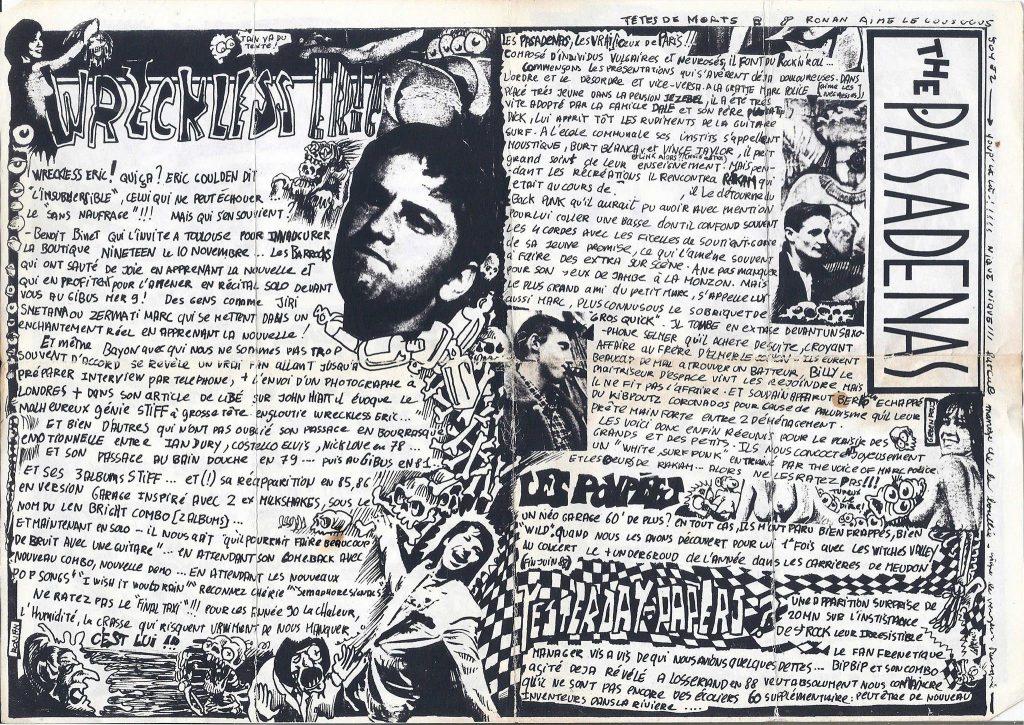 TÊTES DE MORTS RONAN AIME LE COUSCOUS
T'AIN Y A DU
TEXTE!
WRECKLESS ERIC
WRECKLESS ERIC! QUI ÇA? ERIC GOULDEN DIT
"L'INSUBMERSIBLE", CELUI QUI NE PEUT ÉCHOUER ...
LE "SANS NAUFRAGE"!!! MAIS QUI S'EN SOUVIENT?
- BENOIT BINET QUI L'INVITE A TOULOUSE POUR INNAUGURER
LA BOUTIQUE NINETEEN LE 10 NOVEMBRE... LES BARROCKS
QUI ONT SAUTÉ DE JOIE EN APPRENANT LA NOUVELLE ET
QUI EN PROFITENT POUR L'AMENER EN RÉCITAL SOLO DEVANT
VOUS AU GIBUS MER 9! DES GENS COMME JIRI
SMETANA OU ZERMATI MARC QUI SE METTENT DANS UN
ENCHANTEMENT RÉEL EN APPRENANT LA NOUVELLE!
ET MÊME BAYON AVEC QUI NOUS NE SOMMES PAS TROP
SOUVENT D'ACCORD SE RÉVÈLE UN VRAI FAN ALLANT JUSQU'A
PRÉPARER INTERVIEW PAR TELEPHONE, + L'ENVOI D'UN PHOTOGRAPHE à
LONDRES + DANS SON ARTICLE DE LIBÉ SUR JOHN HIATT il ÉVOQUE LE
MALHEUREUX GÉNIE STIFF à GROSSE TÊTE ENGLOUTIE WRECKLESS ERIC...
ET BIEN D'AUTRES QUI N'ONT PAS OUBLIÉ SON PASSAGE EN BOURRASQUE
EMOTIONNELLE ENTRE IAN DURY, COSTELLO ELVIS, NICK LOWE EN 78 ...
ET SON PASSAGE AU BAIN DOUCHE EN 79 ... PUIS AU GIBUS EN 81
ET SES 3 ALBUMS STIFF ... ET (!) SA RÉAPPARITION EN 85, 86
EN VERSION GARAGE INSPIRÉ AVEC 2 EX MILKSHAKES, SOUS LE
NOM DU LEN BRIGHT COMBO [2 ALBUMS] ...
ET MAINTENANT EN SOLO - IL NOUS A DIT "QUI POURRAIT FAIRE BEAUCOUP
DE BRUIT AVEC UNE GUITARE" ... EN ATTENDANT SON COMEBACK AVEC
NOUVEAU COMBO, NOUVELLE DEMO ... EN ATTENDANT LES NOUVEAUX
POP SONGS + "I WISH IT WOULD RAIN" RECONNEZ CHÉRIE "SEMAPHORE SIGNALS"
NE RATEZ PAS LE "FINAL TAXI"!!! POUR LES ANNÉE 90 LA CHALEUR,
L'HUMIDITÉ, LA CRASSE QUI RISQUENT VRAIMENT DE NOUS MANQUER
C'EST LUI!!!
LES PASADENAS, LES VRAI! CEUX DE PARIS!!
COMPOSÉ D'INDIVIDUS VULGAIRES ET NEVROSÉS, IL FONT DU ROCK'N ROLL...
COMMENÇONS LES PRÉSENTATIONS QUI S'AVÈRENT DÉJA DOULOUREUSES. DANS
L'ORDRE ET LE DÉSORDRE ET VICE-VERSA. A LA GRATTE MARC POLICE
PLACÉ TRÈS JEUNE DANS LA PENSION JEZEBEL, IL A ÉTÉ TRÈS
VITE ADOPTÉ PAR LA FAMILLE DALE ET SON PÈRE
DICK, LUI APPRIT TÔT LES RUDIMENTS DE LA GUITARE
SURF. A L'ÉCOLE COMMUNALE SES INSTITS S'APPELLENT
MOUSTIQUE, BURT BLANCA, ET VINCE TAYLOR, IL PRIT
GRAND SOIN DE LEUR ENSEIGNEMENT. MAIS PEN-
DANT LES RÉCRÉATIONS IL RENCONTRA RAKAM QUI
ETAIT AU COURS DE. IL LE DÉTOURNE DU
BACK PINK QU'IL AURAIT PU AVOIR AVEC MENTION
POUR LUI COLLER UNE BASSE DONT IL CONFOND SOUVENT
LES 4 CORDES AVEC LES FICELLES DE SOUTIENT-GORGE
DE SA JEUNE PROMISE, CE QUI L'AMÈNE SOUVENT
À FAIRE DES EXTRA SUR SCÈNE. A NE PAS MANQUER
POUR SON JEUX DE JAMBE À LA MONZON. MAIS
LE PLUS GRAND AMI DU PETIT MARC, S'APPELLE LUI
AUSSI MARC, PLUS CONNU SOUS LE SOBRIQUET DE
"GROS QUICK". IL TOMBE EN EXTASE DEVANT UN SAXO-
-PHONE SELMER QU'IL ACHETE DE SUITE, CROYANT
AFFAIRE AU FRÈRE D'ELMER LE ... ILS EURENT
BEAUCOUP DE MAL A TROUVER UN BATTEUR, BILLY LE
MAITRISEUR D'ESPACE VINT LES REJOINDRE MAIS
IL NE FIT PAS L'AFFAIRE. ET SOUDAIN APPARUT BERKO ECHAPPÉ
DU KIBBOUTZ CORONADOS POUR CAUSE DE PALUDISME QU'IL LEUR
PRÊTE MAIN FORTE ENTRE 2 DÉMÉNAGEMENT.
LES VOICI DONC ENFIN RÉEUNIS POUR LE PLAISIR DES
GRANDS ET DES PETITS. ILS NOUS CONCOCTENT JOYEUSEMENT
UN "WHITE SURF PUNK" ENTRAINÉ PAR THE VOICE OF MARC POLICE
ET LES COEURS DE RAKAM - ALORS NE LES RATEZ PAS!!!
THE PASADENAS
LES POUPÉES
UN NÉO GARAGE 60' DE PLUS? EN TOUT CAS, ILS M'ONT PARU BIEN FRAPPÉS, BIEN
"WILD". QUAND NOUS LES AVONS DÉCOUVERT POUR LA 1° FOIS AVEC LES WITCHES VALLEY
AU CONCERT LE + UNDERGROUD DE L'ANNÉE DANS LES CARRIERES DE MEUDON
(FIN JUIN 89)
YESTERDAY-PAPERS?
UNE APPARITION SURPRISE DE
20 MN SUR L'INSTISTANCE
DE STROCK LEUR IRRESISTIBLE
LE FAN FRENETIQUE
MANAGER VIS A VIS DE QUI NOUS AVIONS QUELQUES DETTES... BIP BIP ET SON COMBO
AÇITÉ DEJA RÉVÉLÉ A LOSSERAND EN 88 VEUT ABSOLUMENT NOUS CONVAINCRE
QU'IL NE SONT PAS ENCORE DES ÉCOLIERS 60 SUPPLÉMENTAIRE: PEUT ÊTRE DE NOUVEAU
INVENTEURS DANS LA RIVIERE ....